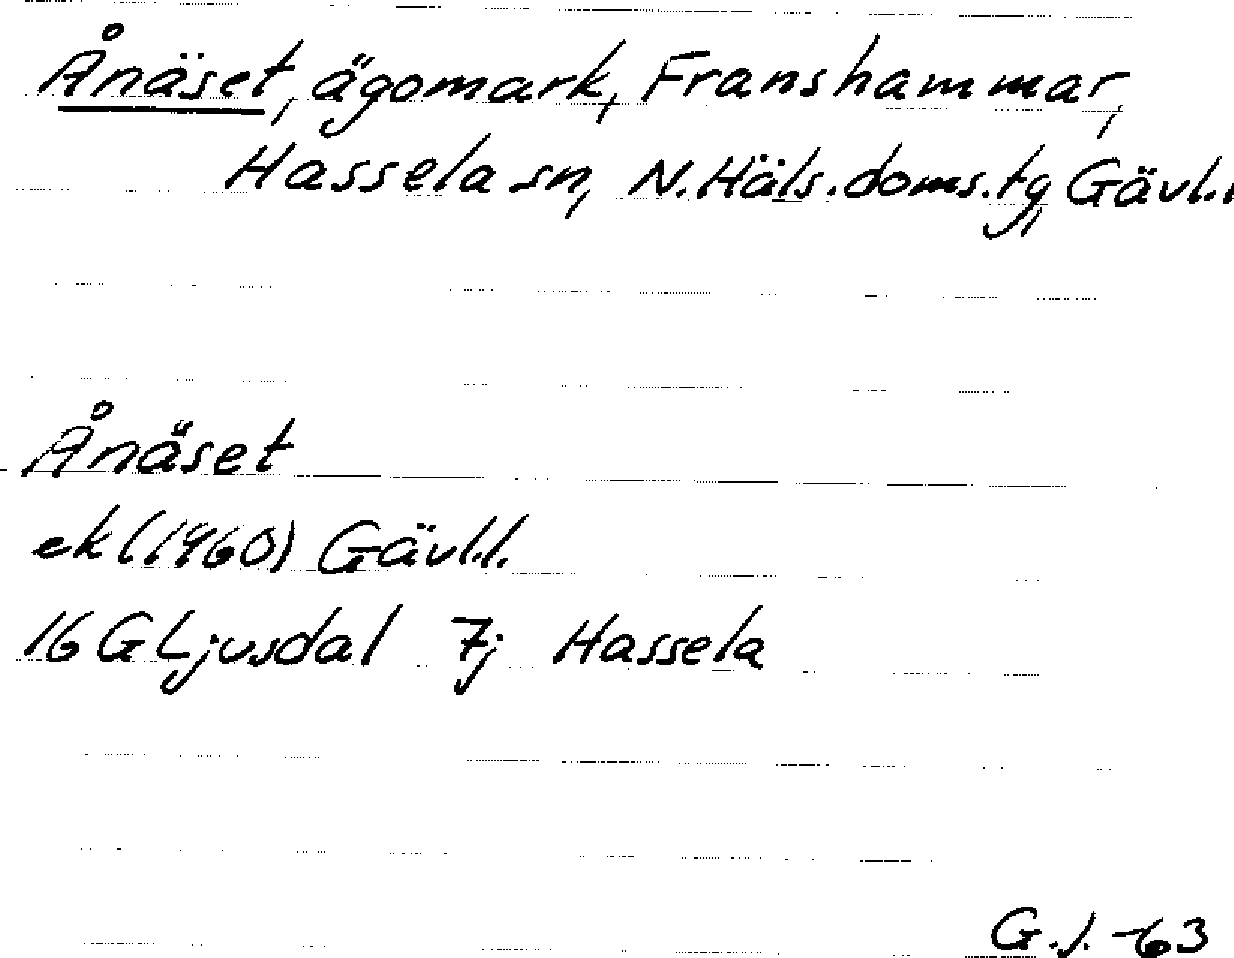 Ånäset, ägomark, Franshammar,
Hassela sn, N. Häls. doms. tg, Gävl. l
Ånäset
ek (1960) Gävl. l.
16 G Ljusdal 7j Hassela
G. J. -63